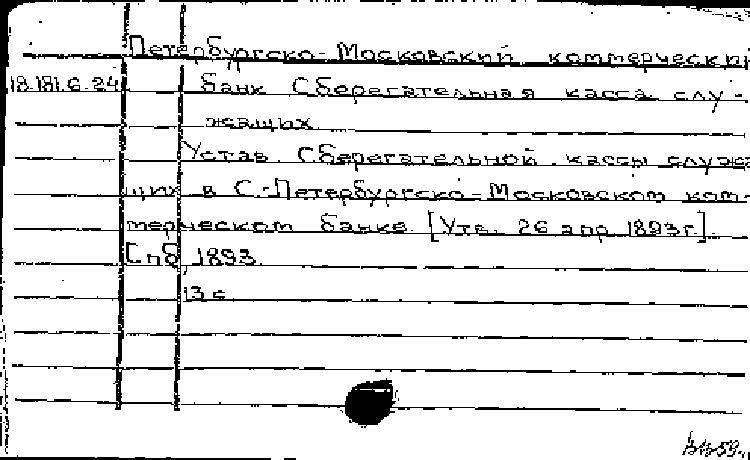 Петербургско-Московский коммерческий
18.181.6.24 банк Сберегательная касса слу-
жащих.
Устав Сберегательной кассы служа
щих в С.-Петербургско-Московском ком-
мерческом банке. [Утв. 26 апр 1893г.].
Спб, 1893.
13 с